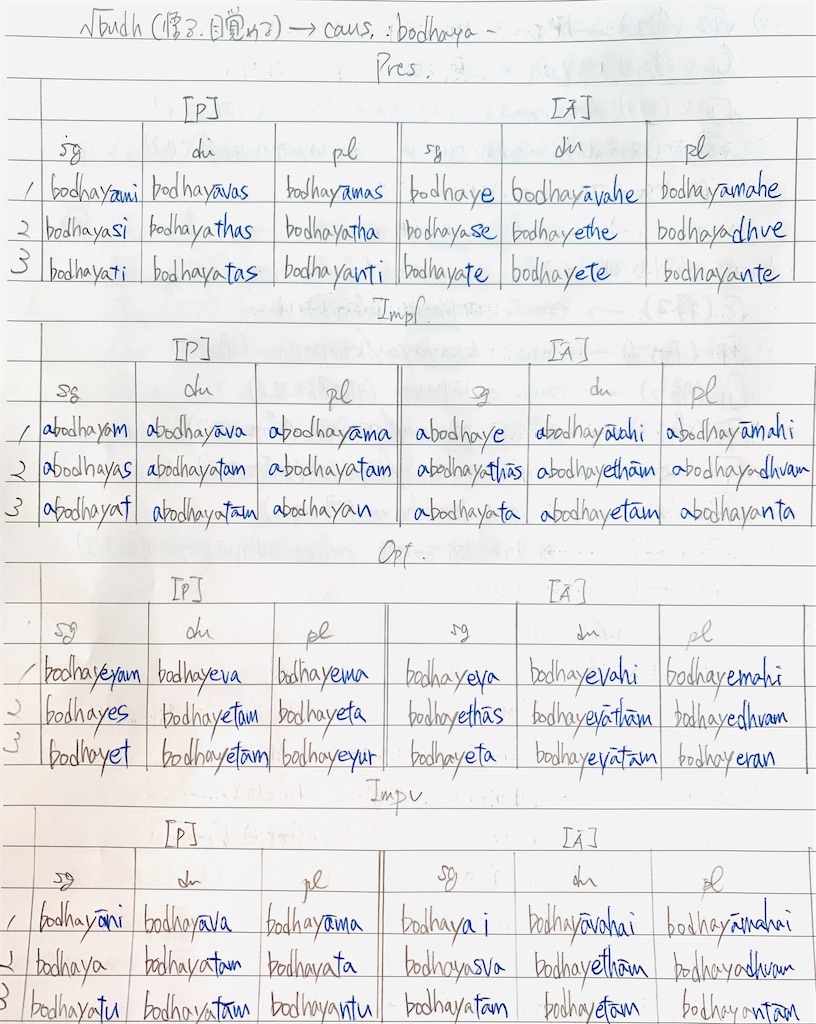 √budh (悟る、目覚める) → caus. : bodhaya -
Pres.
[P] [Ā]
sg du pl sg du pl
1 bodhayāmi bodhayāvas bodhayāmas bodhaye bodhayāvahe bodhayāmahe
2 bodhayasi bodhayathas bodhayatha bodhayase bodhayethe bodhayadhve
3 bodhayati bodhayatas bodhayanti bodhayate bodhayete bodhayante
Impf.
[P] [Ā]
sg du pl sg du pl
1 abodhayam abodhayāva abodhayāma abodhaye abodhayāvahi abodhayāmahi
2 abodhayas abodhayatam abodhayatam abodhayathās abodhayethām abodhayadhvam
3 abodhayat abodhayatām abodhayan abodhayata abodhayetām abodhayanta
Opt.
[P] [Ā]
sg du pl sg du pl
1 bodhayeyam bodhayeva bodhayema bodhayeya bodhayevahi bodhayemahi
2 bodhayes bodhayetam bodhayeta bodhayethās bodhayeyāthām bodhayedhvam
3 bodhayet bodhayetām bodhayeyur bodhayeta bodhayeyātām bodhayeran
Impv
[P] [Ā]
sg du pl sg du pl
1 bodhayāni bodhayāva bodhayāma bodhayai bodhayāvahai bodhayāmahai
2 bodhaya bodhayatam bodhayata bodhayasva bodhayethām bodhayadhvam
3 bodhayatu bodhayatām bodhayantu bodhayatām bodhayetām bodhayantām